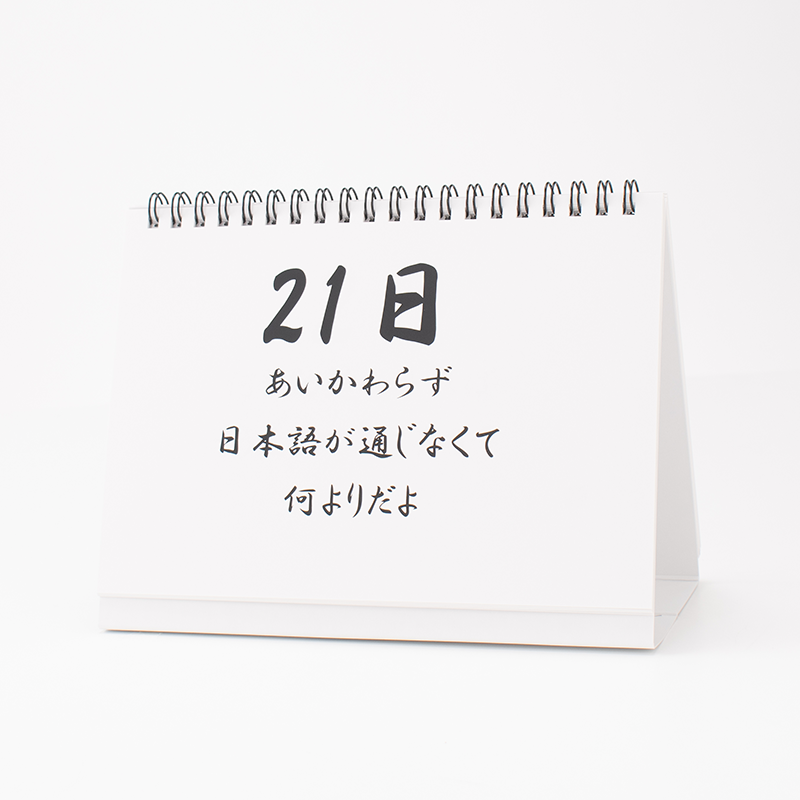 21日
あいかわらず
日本語が通じなくて
何よりだよ